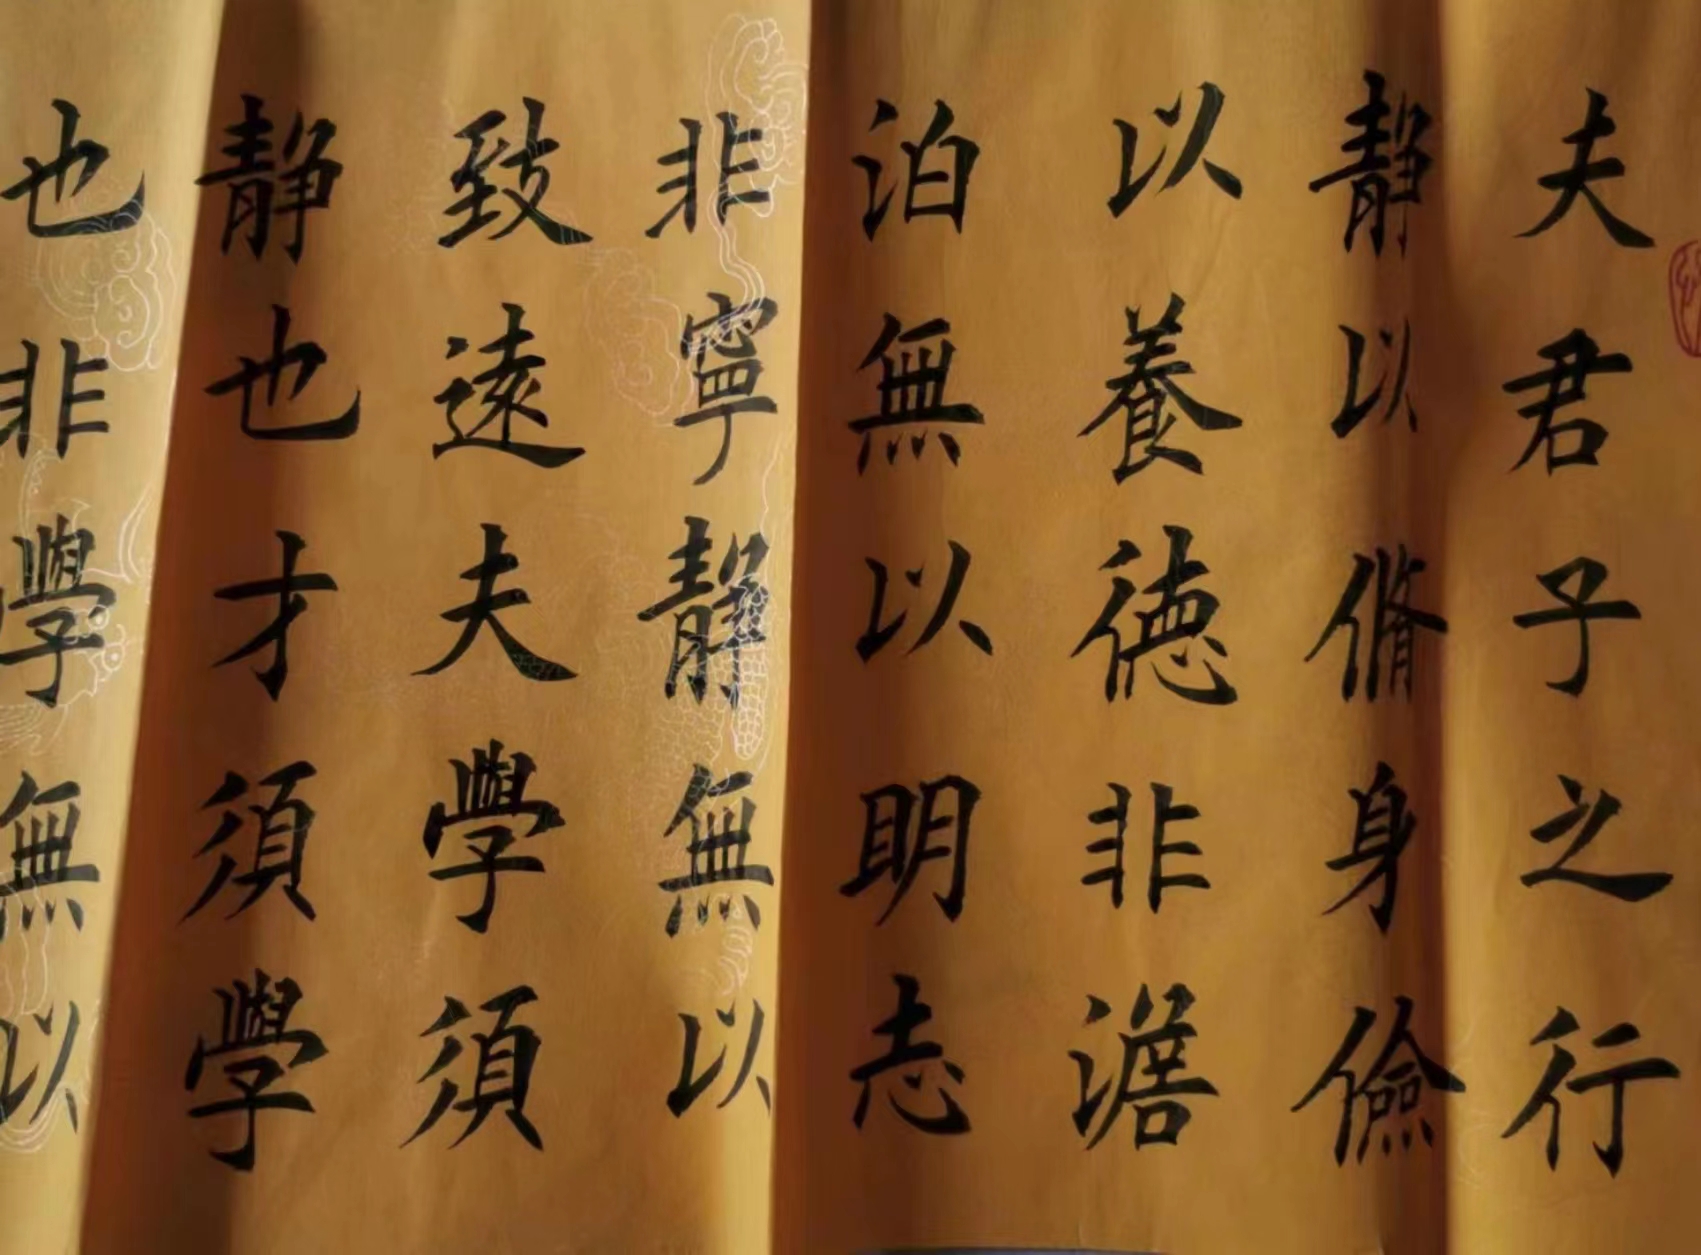 夫君子之行
静以脩身儉
以養德非澹
泊無以明志
非寧静無以
致遠夫學須
静也才須學
也非學無以